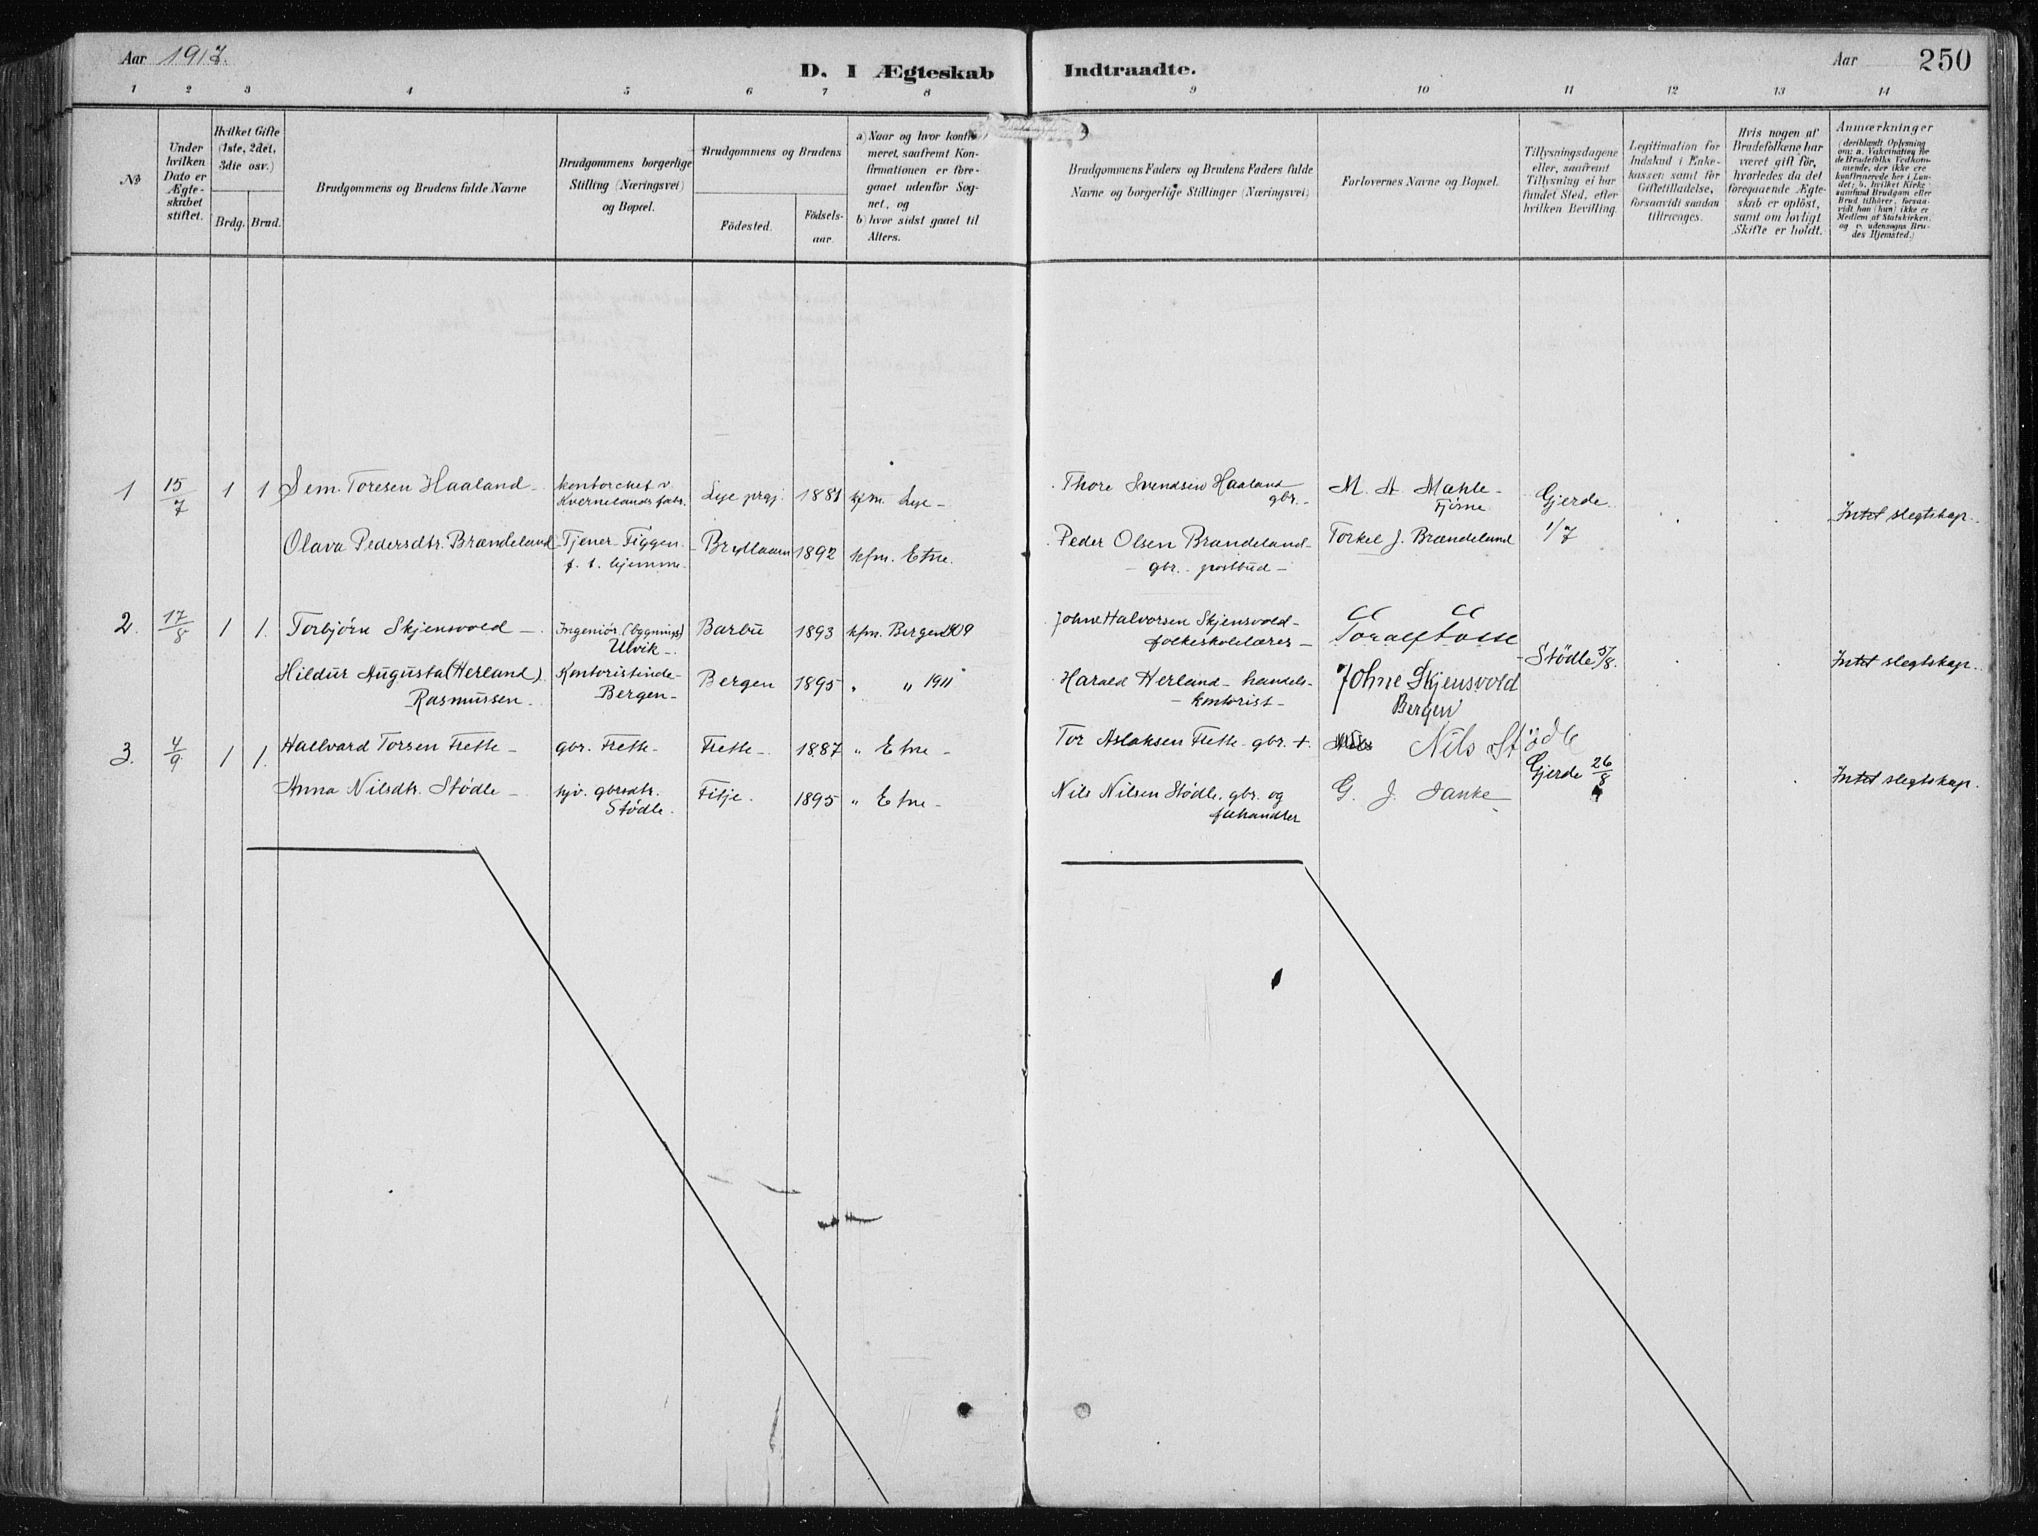 Aar 1917.
D. I Ægteskab
Indtraadte.
Aar
250
1 2 3 4 5 6 7 8 9 10 11 12 13 14
No
Under hvilken Dato er Ægteskabet stiftet.
Hvilket Gifte (1ste, 2det, 3die osv.)
Brdg. Brud.
Brudgommens og Brudens fulde Navne
Brudgommens borgerlige Stilling (Næringsvei) og Bopæl.
Brudgommens og Brudens
Födested.
Födselsaar.
a) Naar og hvor konfirmeret, saafremt Konfirmationen er foregaaet udenfor Sognet, og
b) hvor sidst gaaet til Alters.
Brudgommens Faders og Brudens Faders fulde Navne og borgerlige Stillinger (Næringsvei)
Forlovernes Navne og Bopæl.
Tillysningsdagene eller, saafremt Tillysning ei har fundet Sted, efter hvilken Bevilling.
Legitimation for Indskud i Enkekassen samt for Giftetilladelse, forsaavidt saadan tiltrænges.
Hvis nogen af Brudefolkene har været gift för, hvorledes da det foregaaende Ægteskab er oplöst, samt om lovligt Skifte er holdt.
Anmærkninger (deriblandt Oplysning om: a. Vakcination for de Brudefolks Vedkommende, der ikke ere konfirmerede her i Landet; b. hvilket Kirkesamfund Brudgom eller Brud tilhörer, forsaavidt han (hun) ikke er Medlem af Statskirken, og c. udensogns Brudes Hjemsted.)
1 15/7 1 1 Sem. Toresen Haaland kontorchef v. Kvernelands fabr. Lye prgj. 1881 kfm. Lye
Thore Svendsen Haaland gbr. M. A. Mæhle Fjösne Gjerde 1/7 Intet slegtskap.
Olava Pedersdtr. Brændeland Tjener Figgen f. t. hjemme 1892 kfm. Etne.
Peder Olsen Brændeland gbr. postbud Torkel J. Brændeland
2. 17/8 1 1. Torbjörn Skjensvold Ingeniör (bygnings) Ulvik Barbu 1893 kfm. Bergen 1909
Johne Halvorsen Skjensvold folkeskolelærer Stödle 5/8. Intet slegtskap.
Hildur Augusta (Herland) Rasmussen Kontoristinde Bergen Bergen 1895 " " 1911
Harald Herland handelskontorist Johne Skjensvold Bergen
3. 4/9 1 1. Hallvard Torsen Frette gbr. Frette Frette 1887 " Etne
Tor Aslaksen Frette gbr. +. Nils Stödle Gjerde 26/8 Intet slegtskap.
Anna Nilsdtr. Stödle hjv. gbrsdtr. Stödle. Fitje. 1895 " Etne
Nils Nilsen Stödle, gbr. og fehandler G. J. Sanke